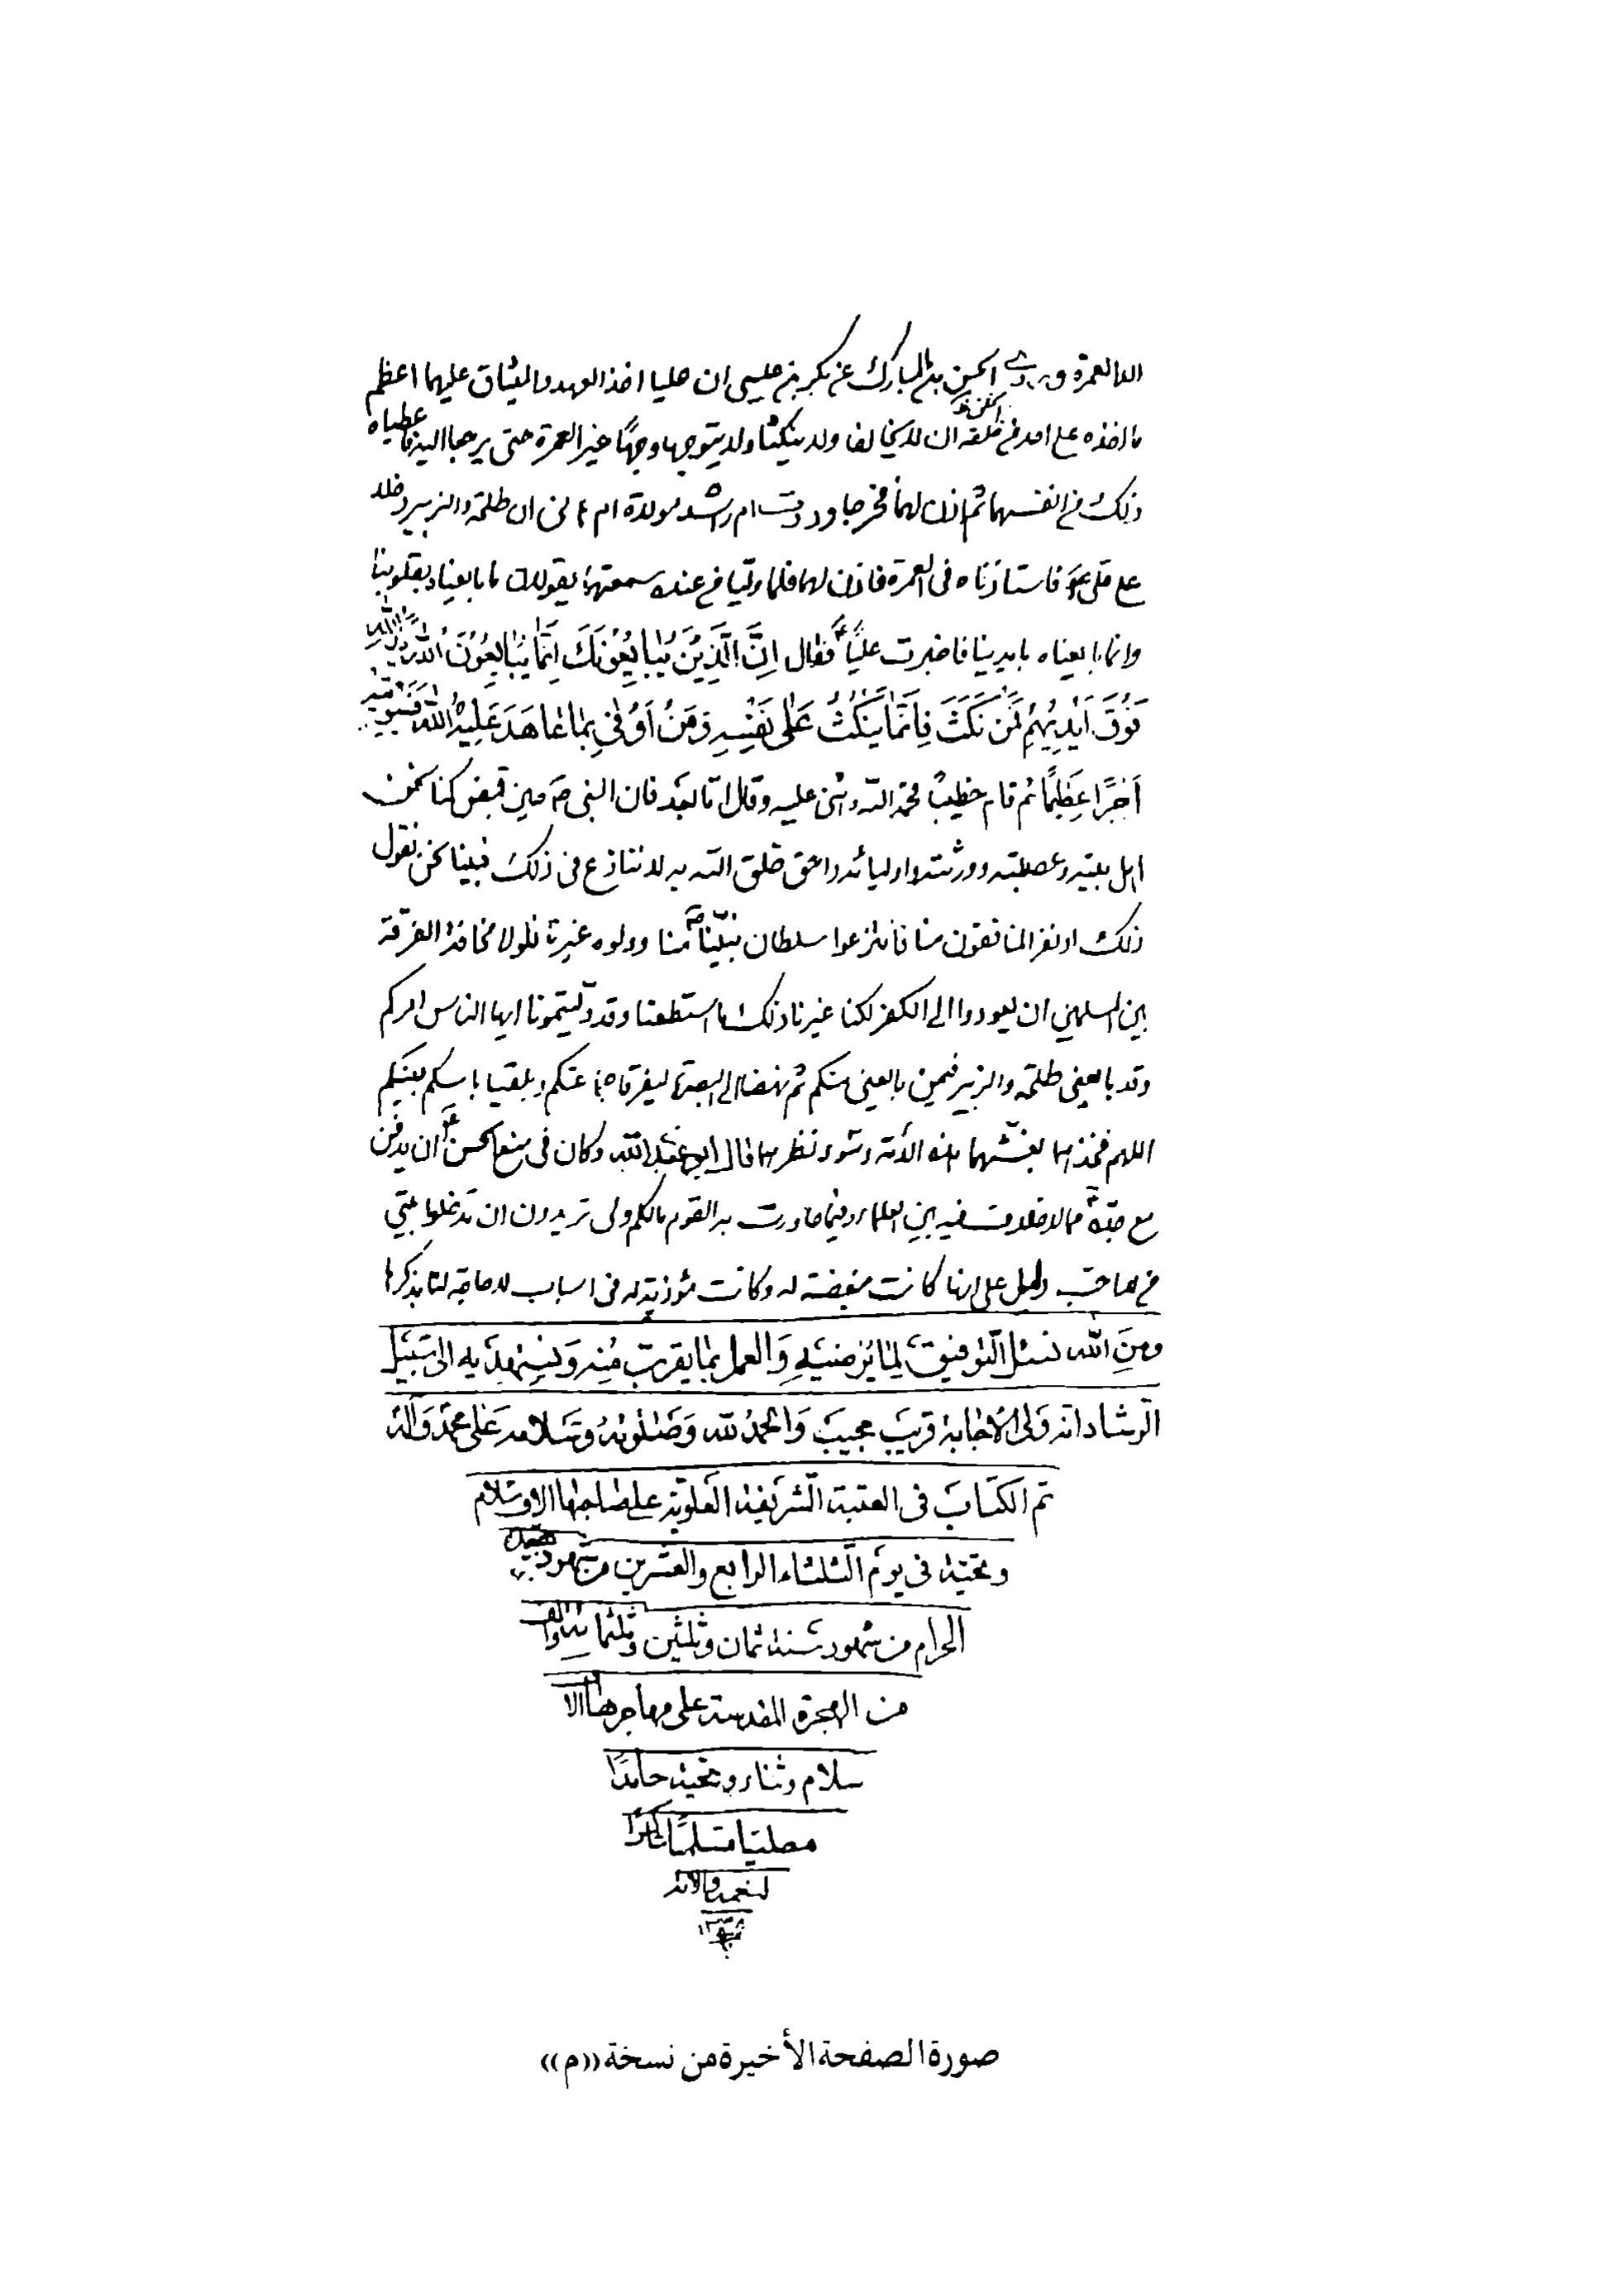 الا العمرة وروى الحسن بن المبارك عن بكر بن عيسى ان عليا اخذ العهد والميثاق عليهما اعظم
ما اخذه على احد من خلقه ان لا يخالفا ولا ينكثا ولا يتوجها وجها غير العمرة حتى يرجعا اليه فاعطياه
ذلك من انفسهما ثم اذن لهما فخرجا وروت ام راشد مولاة ام هانى ان طلحة والزبير دخلا
على على ع فاستاذناه فى العمرة فاذن لهما فلما وليا من عنده سمعتهما يقولان ما بايعناه بقلوبنا
وانما بايعناه بايدينا فاخبرت عليّاً ع فقال اِنَّ الَّذِيْنَ يُبايِعُوْنَكَ اِنَّما يُبايِعُوْنَ اللّٰهَ يَدُ اللّٰهِ
فَوْقَ اَيْدِيْهِمْ فَمَنْ نَكَثَ فَاِنَّما يَنْكُثُ عَلٰى نَفْسِهِ وَمَنْ اَوْفٰى بِما عاهَدَ عَلَيْهُ اللّٰهَ فَسَيُؤْتِيْهِ
اَجْرًا عَظِيْمًا ثم قام خطيبا فحمد الله واثنى عليه وقال اما بعد فان النبى ص حين قبض كنا نحن
اهل بيته وعصبته وورثته واوليائه واحق خلق الله به لا ننازع فى ذلك فبينا نحن نقول
ذلك اذ نفر المنافقون منا فانتزعوا سلطان نبيّنا ص منا وولوه غيرنا فلولا مخافة الفرقة
بين المسلمين ان يعودوا الى الكفر لكنا غيرنا ذلك ما استطعنا وقد وليتمونا ايها الناس امركم
وقد بايعنى طلحة والزبير فيمن بايعنى منكم ثم نهضا الى البصرة ليفرقا جماعتكم ويلقيا باسكم بينكم
اللهم فخذهما بغشهما هذه الأمة وسوء نظرهما قال ابو عبد الله وكان فى منع الحسن ع ان يدفن
مع جده ص مما لا خلاف فيه بين العلماء وفيما حاورت به القوم مالكم ولى تريدون ان تدخلوا بيتى
من لا احب دليل على انها كانت مبغضة له وكانت مؤذية له فى اسباب لا حاجة لنا بذكرها
ومِنَ الله نسئل التوفيق لِما يُرضيه وَالعمل بما يقرب مِنه وَنستهديه الى سَبيل
الرشاد انه وَلى الاجابة قريب مجيب وَالحمدُ لله وَصَلوتهُ وَسَلامه عَلى محمّد وَاله
تم الكتاب فى العتبة الشريفة العلوية على صاحبها الاف سلام
وتحية فى يوم الثلثاء الرابع والعشرين من شهر ذيحجة
الحرام من شهور سنة ثمان وثلثين وثلثمائة والف
من الهجرة المقدسة على مهاجرها الا
سلام وثناء وتحية حامدًا
مصليا مسلمًا شاكرًا
لنعمه والائه
١٣٣٨
صورة الصفحة الأخيرة من نسخة ((م))